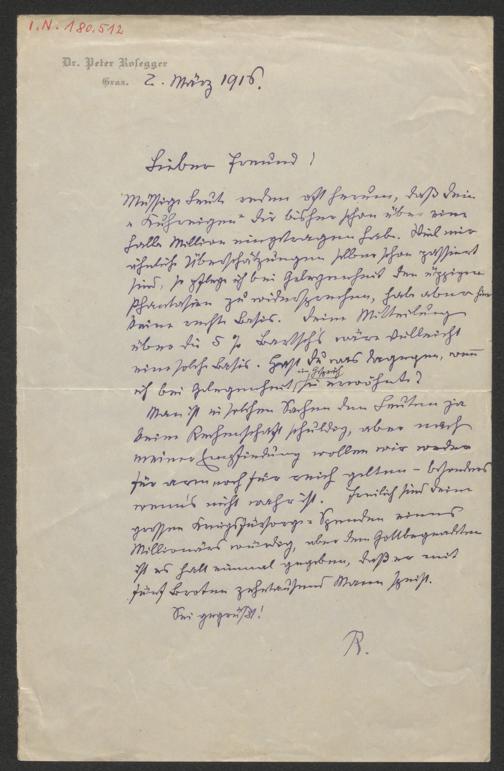 I.N. 180.512
Dr. Peter Rosegger
Graz.
2. März 1916.
Lieber Freund!
Müssige Leute reden oft herum, daß dein
„Kuhreigen“ dir bisher schon über eine
halbe Million eingetragen habe. Weil mir
ähnliche Überschätzungen selber schon passiert
sind, so pflege ich bei Gelegenheit den üppigen
Phantasien zu widersprechen, habe aber
keine rechte Basis. Deine Mitteilung
über die 5 % Bartsch's wäre vielleicht
eine solche Basis. Hast du was dagegen, wenn
im Gespräch
ich bei Gelegenheit sie erwähnte?
Man ist in solchen Sachen den Leuten ja
keine Rechenschaft schuldig, aber nach
meiner Empfindung wollen wir weder
für arm noch für reich gelten – besonders
wenn's nicht wahr ist. Freilich sind deine
grossen Kriegsfürsorge-Spenden eines
Millionärs würdig, aber dem Gottbegnadeten
ist es halt einmal gegeben, daß er mit
fünf Broten zehntausend Mann speist.
Sei gegrüßt!
R.